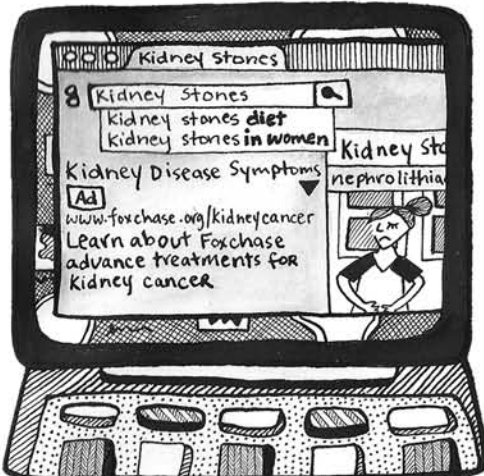 Kidney Stones
Kidney Stones
kidney stones diet
kidney stones in women
Kidney Disease Symptoms
Ad
www.foxchase.org/kidneycancer
Learn about Foxchase
advance treatments for
Kidney cancer
Kidney Sto
nephrolithia